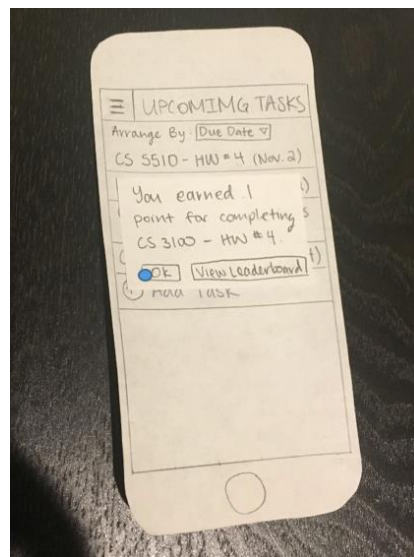 ☰ UPCOMIMG TASKS
Arrange By: Due Date ▽
CS 5510 - HW #4 (Nov. 2)
You earned 1
point for completing
CS 3100 - HW #4.
OK View Leaderboard
Add Task